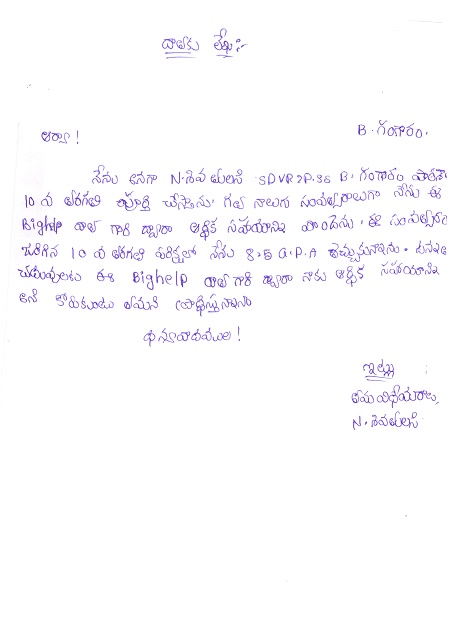 దాతకు లేఖ:-
B. గంగారం.
అయ్యా!
నేను అనగా N. శివ తులసి SDVR ZP.SS B. గంగారం పాఠశాల
10 వ తరగతి పూర్తి చేసాను. గత నాలుగు సంవత్సరాలుగా నేను ఈ
Bighelp దాత గారి ద్వారా ఆర్థిక సహాయాన్ని పొందెను. ఈ సంవత్సరం
జరిగిన 10 వ తరగతి పరీక్షలో నేను 8.5 G.P.A తెచ్చుకున్నాను.
చదువులకు ఈ Bighelp దాత గారి ద్వారా నాకు ఆర్థిక సహాయాన్ని
అని కోరుకుంటు తమని ప్రార్థిస్తున్నాను
ధన్యవాదములు!
ఇట్లు
తమ విధేయురాలు,
N. శివతులసి